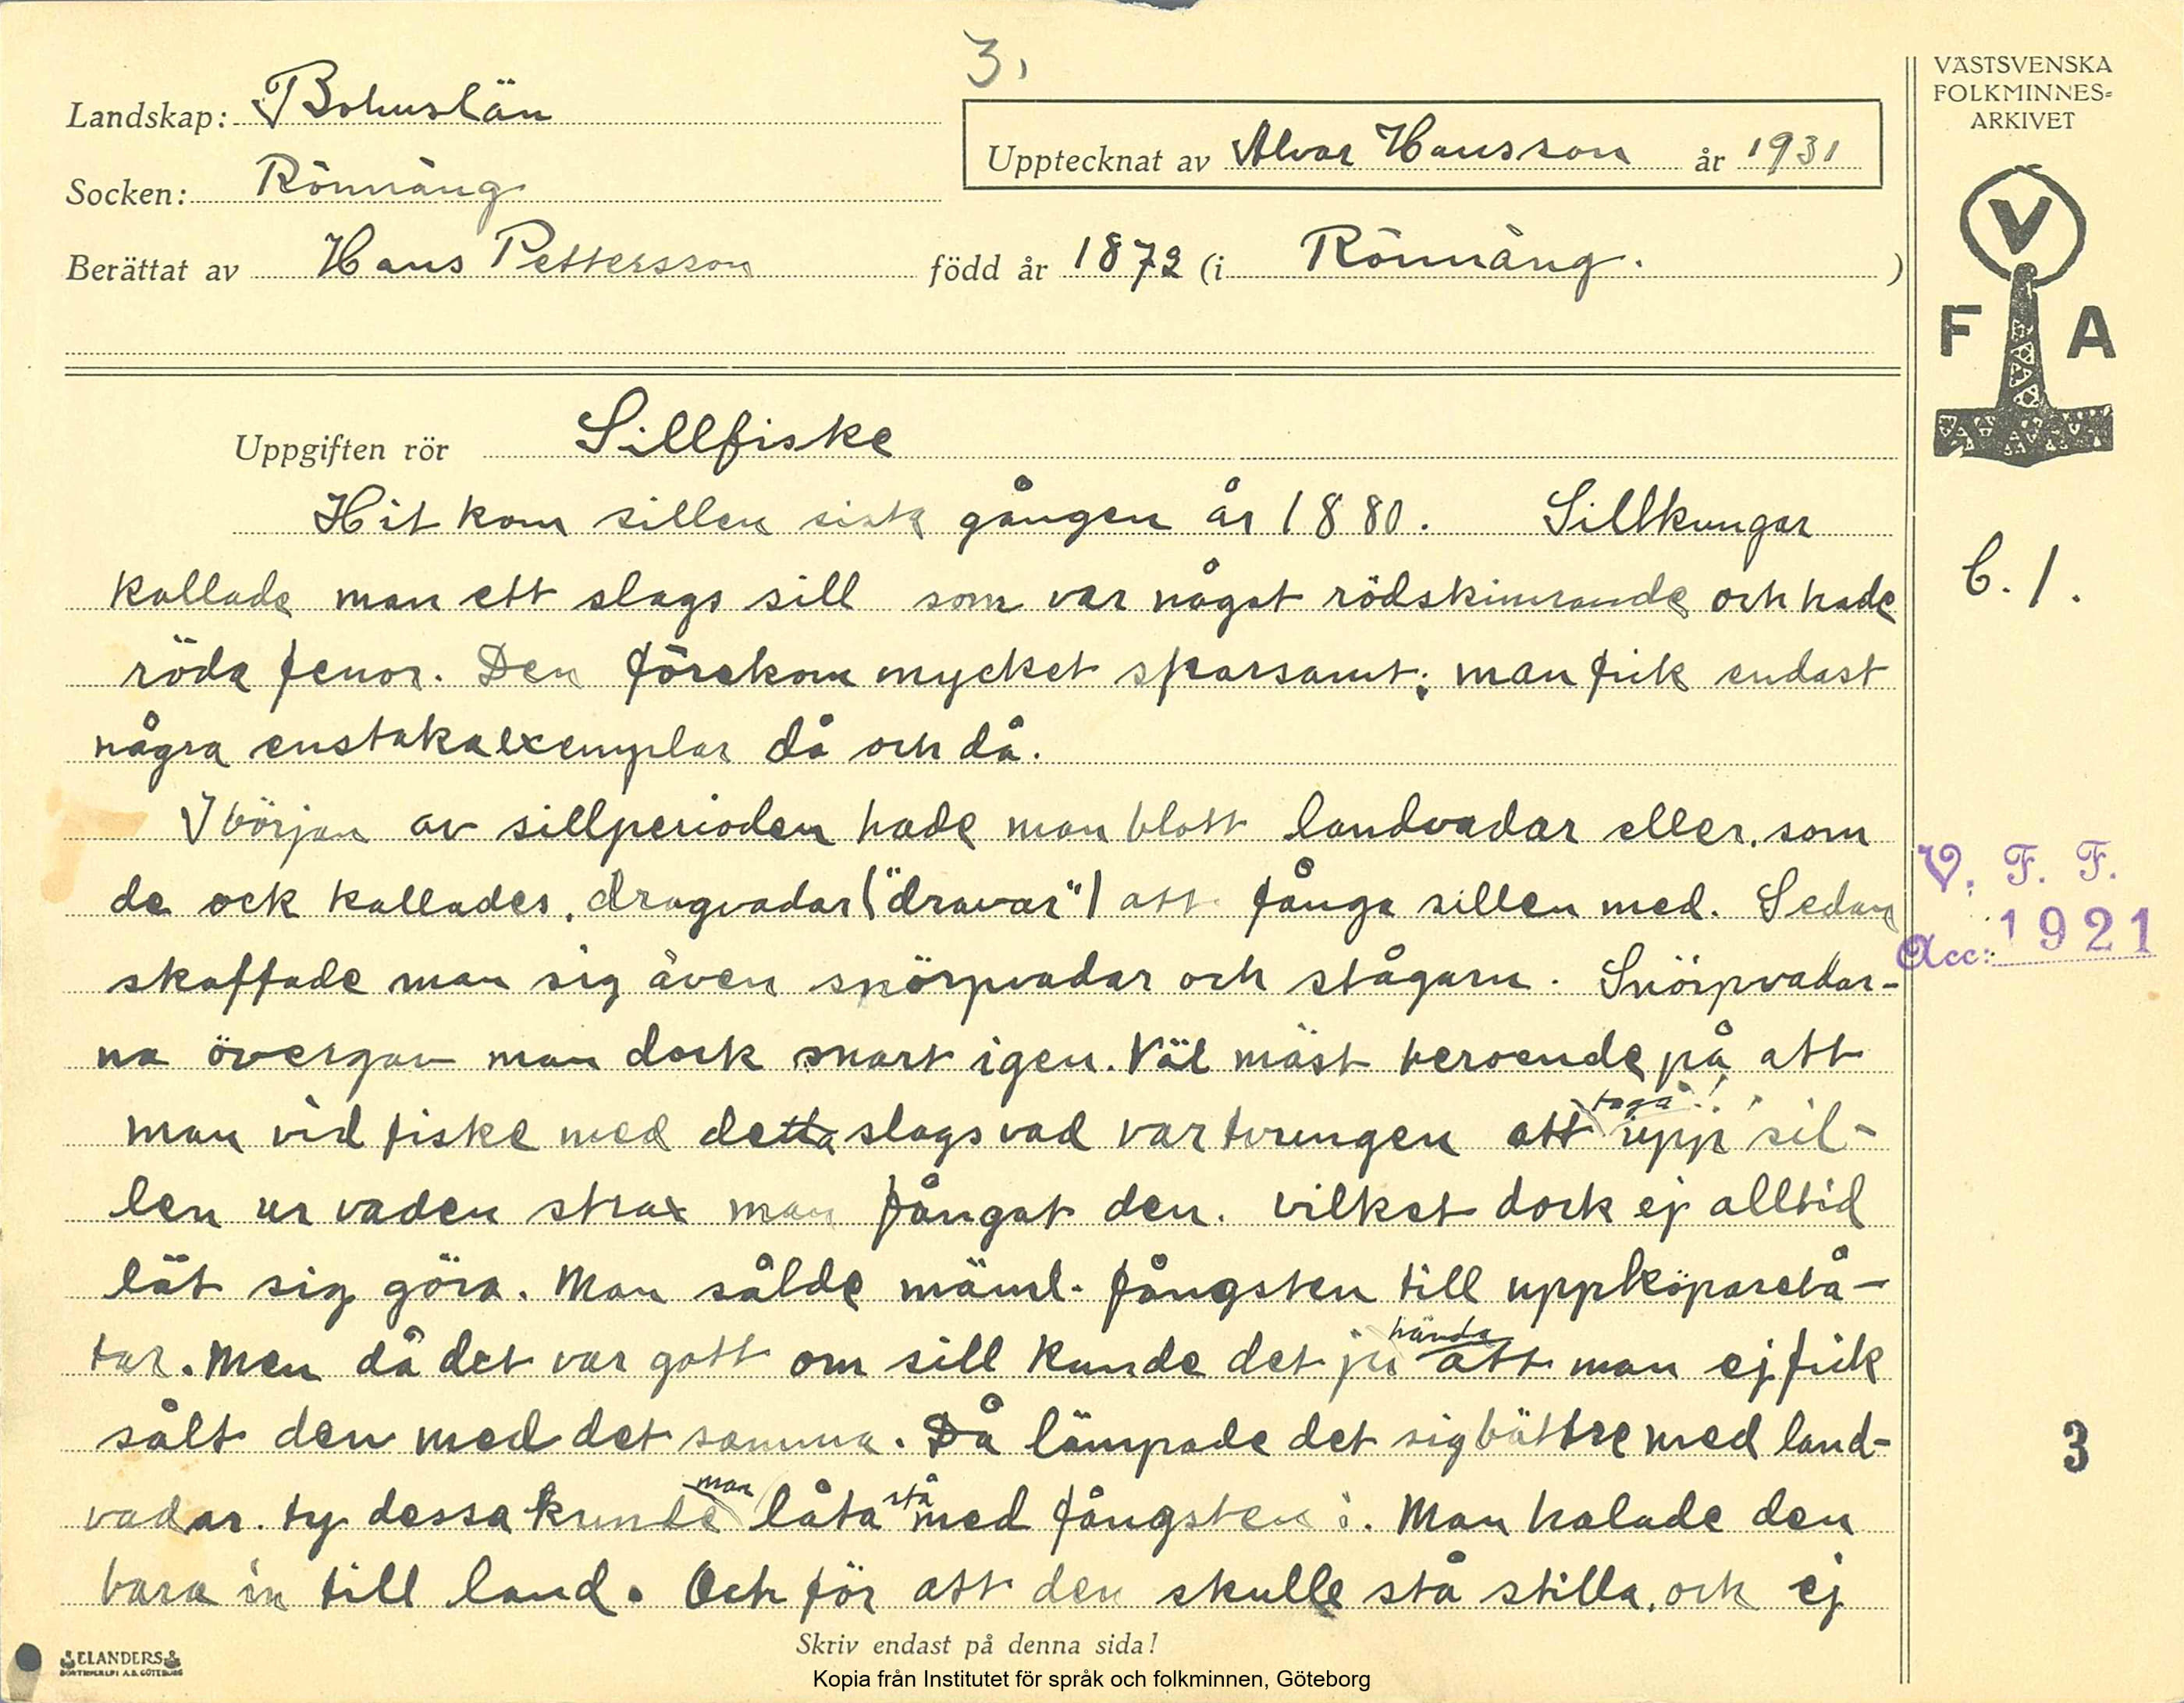 3,
Landskap: Bohuslän
Socken: Rönnäng
Upptecknat av Alvar Hansson år 1931
Berättat av Hans Pettersson född år 1872 (i Rönnäng. )
VÄSTSVENSKA
FOLKMINNES=
ARKIVET
V
F A
Uppgiften rör Sillfiske
Hit kom sillen sista gången år 1880. Sillkungar
kallade man ett slags sill som var något rödskimrande och hade
röda fenor. Den förekom mycket sparsamt; man fick endast
några enstaka exemplar då och då.
I början av sillperioden hade man blott landvadar eller, som
de ock kallades, dragvadar ("dravar") att fånga sillen med. Sedan
skaffade man sig även snörpvadar och stågarn. Snörpvadar-
na övergav man dock snart igen. Väl mäst beroende på att
man vid fiske med detta slags vad var tvungen att taga upp sil-
len ur vaden strax man fångat den, vilket dock ej alltid
lät sig göra. Man sålde näml. fångsten till uppköparebå-
tar. Men då det var gott om sill kunde det ju hända att man ej fick
sålt den med det samma. Då lämpade det sig bättre med land-
vadar, ty dessa kunde man låta stå med fångsten i. Man halade den
bara in till land. Och för att den skulle stå stilla, ock ej
C. 1.
V. F. F.
Acc: 1921
3
ELANDERS
Skriv endast på denna sida!
Kopia från Institutet för språk och folkminnen, Göteborg